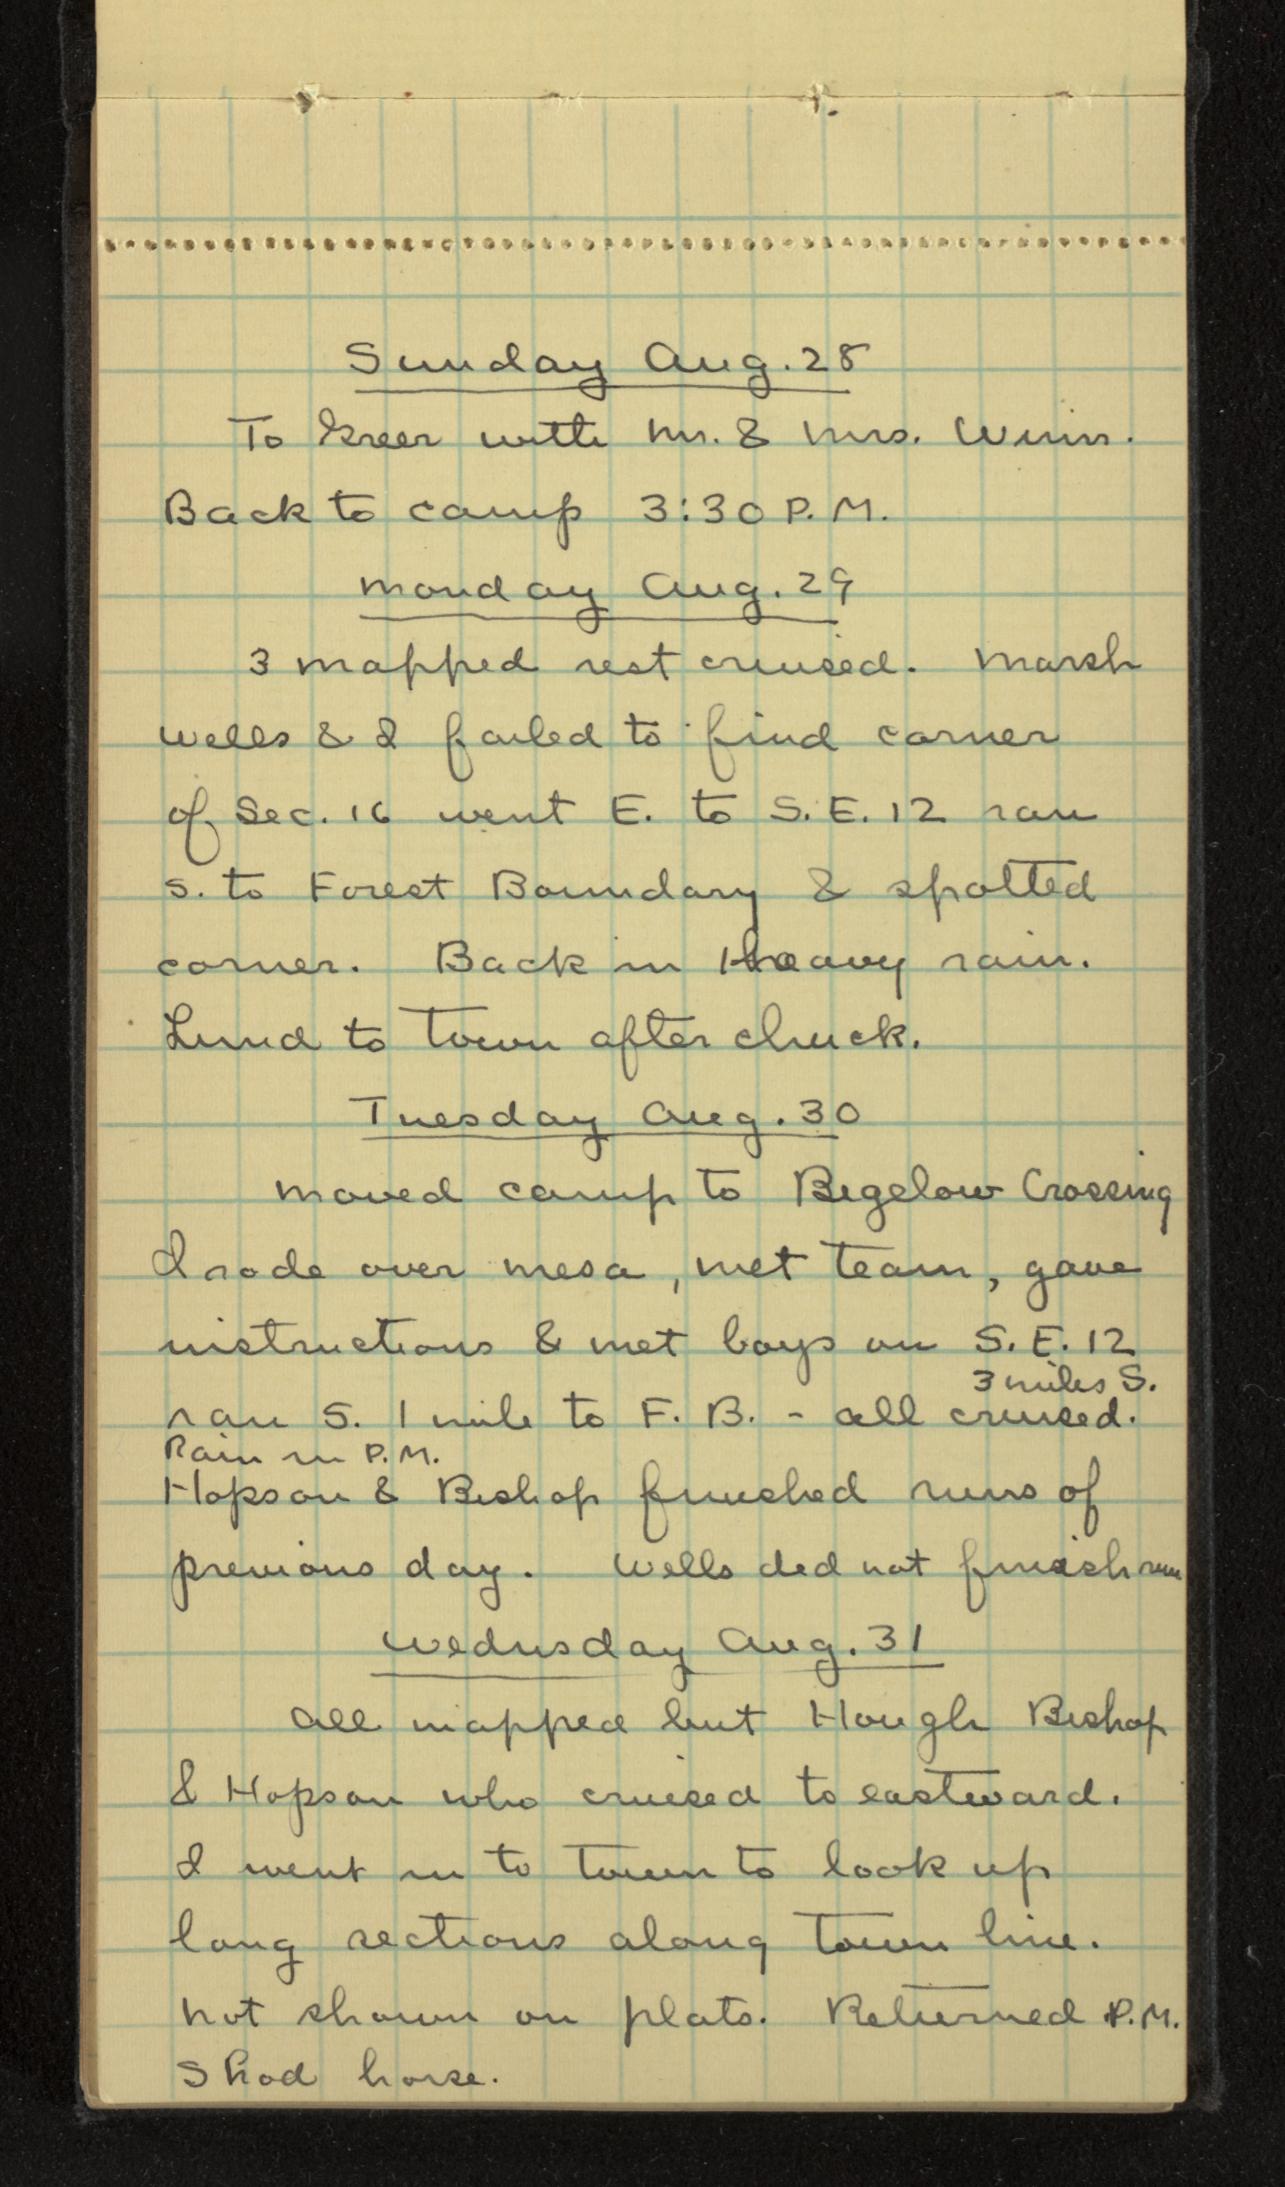 Sunday Aug. 28
To Greer with Mr. & Mrs. Winn.
Back to camp 3:30 P.M.
Monday Aug. 29
3 mapped rest cruised. Marsh
Wells & I failed to find corner
of Sec. 16 went E. to S.E. 12 ran
S. to Forest Boundary & spotted
corner. Back in Heavy rain.
Lund to Town after chuck.
Tuesday Aug. 30
Moved camp to Bigelow Crossing
I rode over mesa, met team, gave
instructions & met boys on S.E. 12
3 miles S.
ran S. 1 mile to F.B. - all cruised.
Rain in P.M.
Hopson & Bishop finished runs of
previous day. Wells did not finish run
Wednsday Aug. 31
All mapped but Hough Bishop
& Hopson who cruised to eastward.
I went in to town to look up
long sections along town line.
not shown on plats. Returned P.M.
Shod horse.